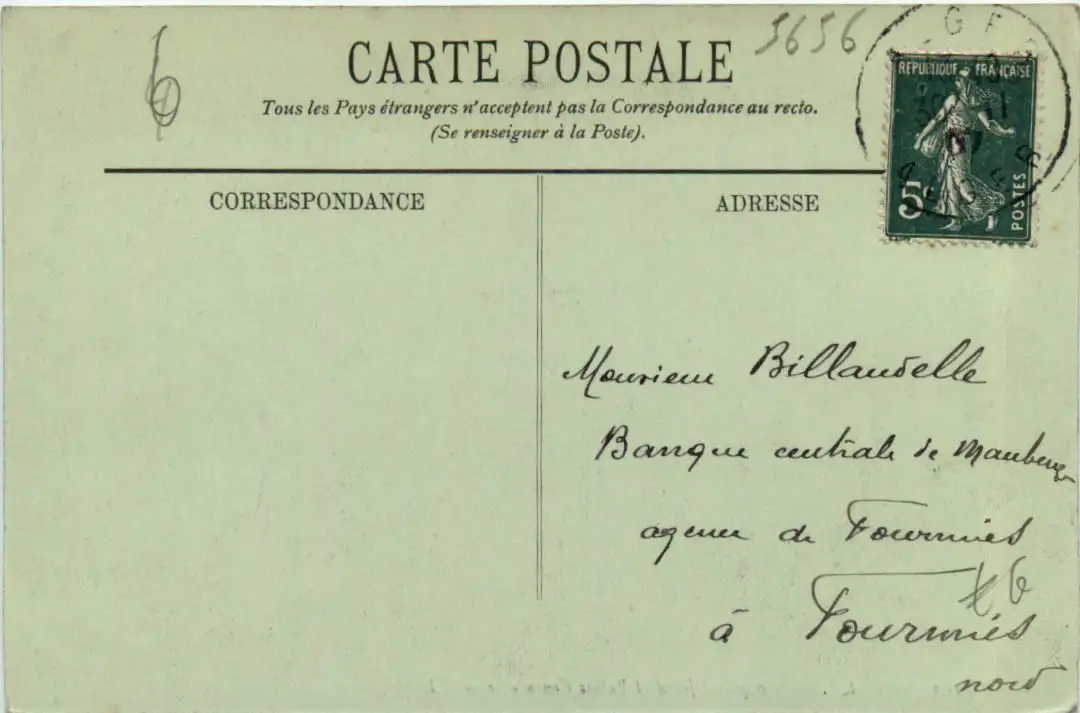 5656
6
CARTE POSTALE
Tous les Pays étrangers n'acceptent pas la Correspondance au recto.
(Se renseigner à la Poste).
REPUBLIQUE FRANÇAISE
5c
POSTES
CORRESPONDANCE
ADRESSE
Monsieur Billaudelle
Banque centrale de Maubeuge
agence de Fourmies
à Fourmies
nord